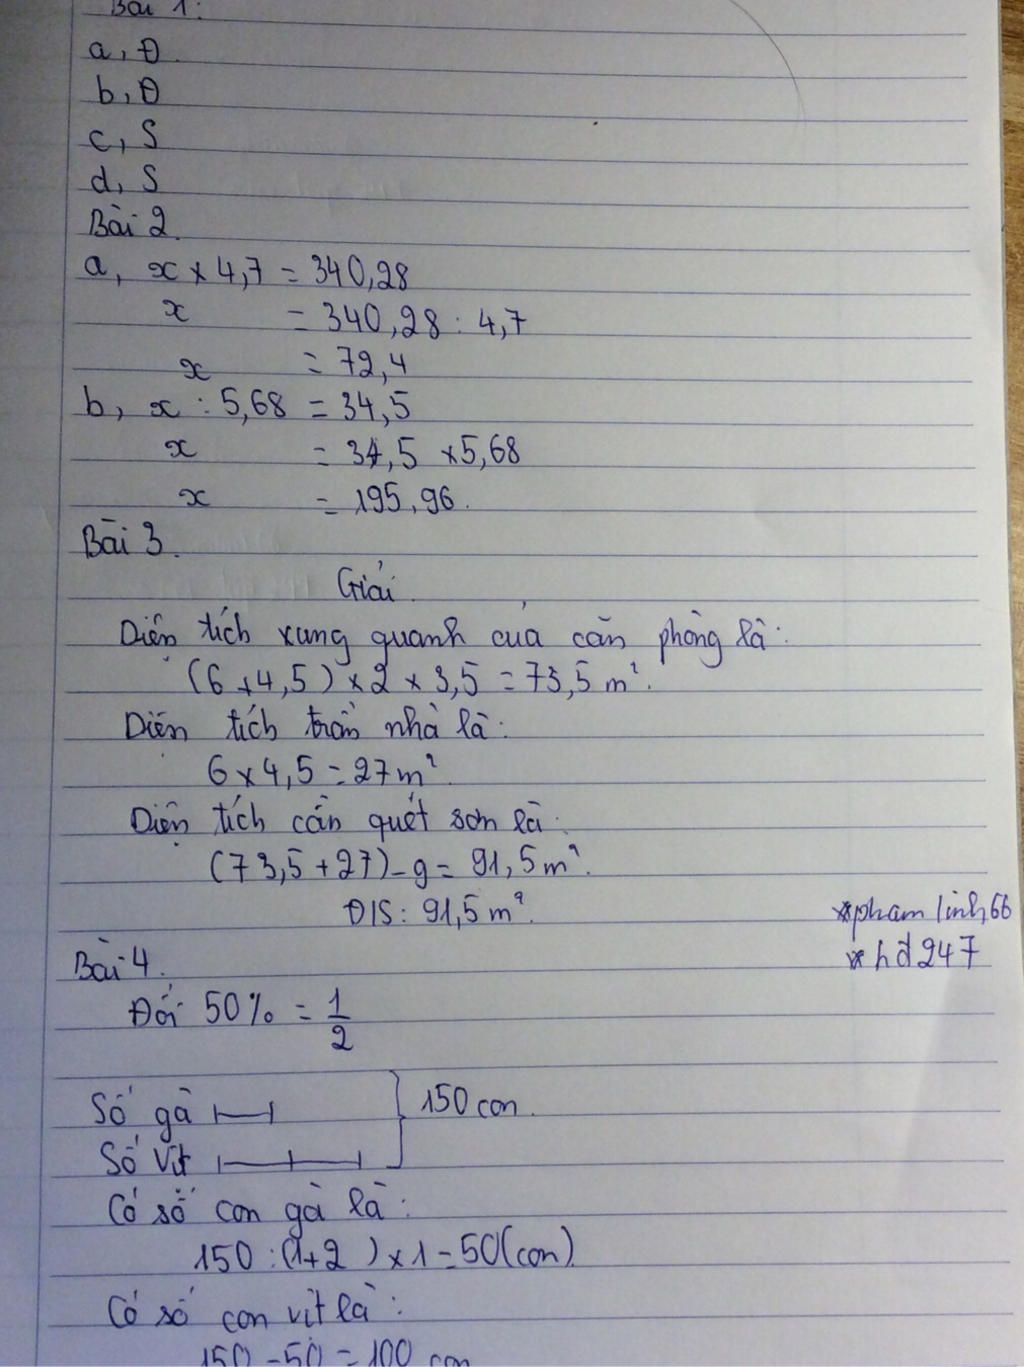 Bài 1:
a, Đ
b, Đ
c, S
d, S
Bài 2.
a, x × 4,7 = 340,28
x = 340,28 : 4,7
x = 72,4
b, x : 5,68 = 34,5
x = 34,5 × 5,68
x = 195,96.
Bài 3.
Giải.
Diện tích xung quanh của căn phòng là:
(6 + 4,5) × 2 × 3,5 = 73,5 m².
Diện tích trần nhà là:
6 × 4,5 = 27 m².
Diện tích cần quét sơn là:
(73,5 + 27) - 9 = 91,5 m².
Đ/S: 91,5 m².
*phamlinh66
*hđ247
Bài 4.
Đổi 50% = 1/2
Số gà
150 con.
Số vịt
Có số con gà là:
150 : (1+2) × 1 = 50 (con)
Có số con vịt là:
150 - 50 = 100 con